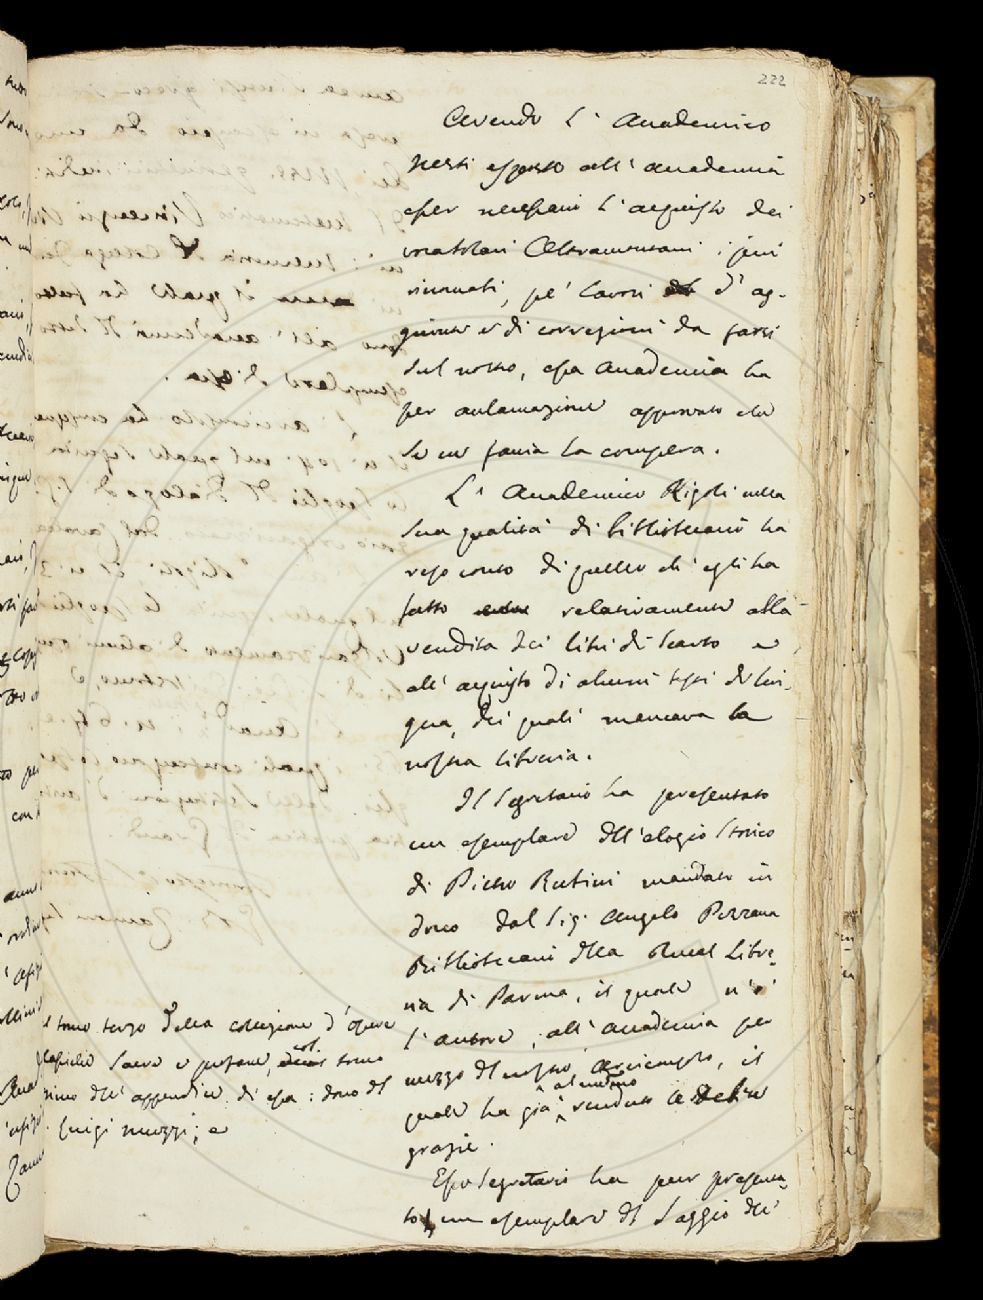 222
Avendo l'Accademico
Nesti esposto all'Accademia
esser necessario l'acquisto dei
vocabolari Oltramontani i più
rinomati, pe' lavori d'ag-
giunte e di correzioni da farsi
sul nostro, essa Accademia ha
per acclamazione approvato che
se ne faccia la compera.
L'Accademico Rigoli nella
sua qualità di bibliotecario ha
reso conto di quello ch'egli ha
fatto relativamente alla
vendita dei libri di scarto e
all'acquisto di alcuni testi di lin-
gua, dei quali mancava la
nostra libreria.
Il Segretario ha presentato
un esemplare dell'elogio storico
di Pietro Rubini mandato in
dono dal Sig. Angelo Pezzana
Bibliotecario della Real Libre-
ria di Parma, il quale n'è
l'autore, all'Accademia per
mezzo del nostro Arciconsolo, il
quale ha già al medmo rendute le debite
grazie.
Esso Segretario ha pur presenta-
to un esemplare del Saggio del
tomo terzo della collezione d'opere
sacre e profane, col tomo
primo dell'appendice di essa: dono del
Luigi Muzzi; e